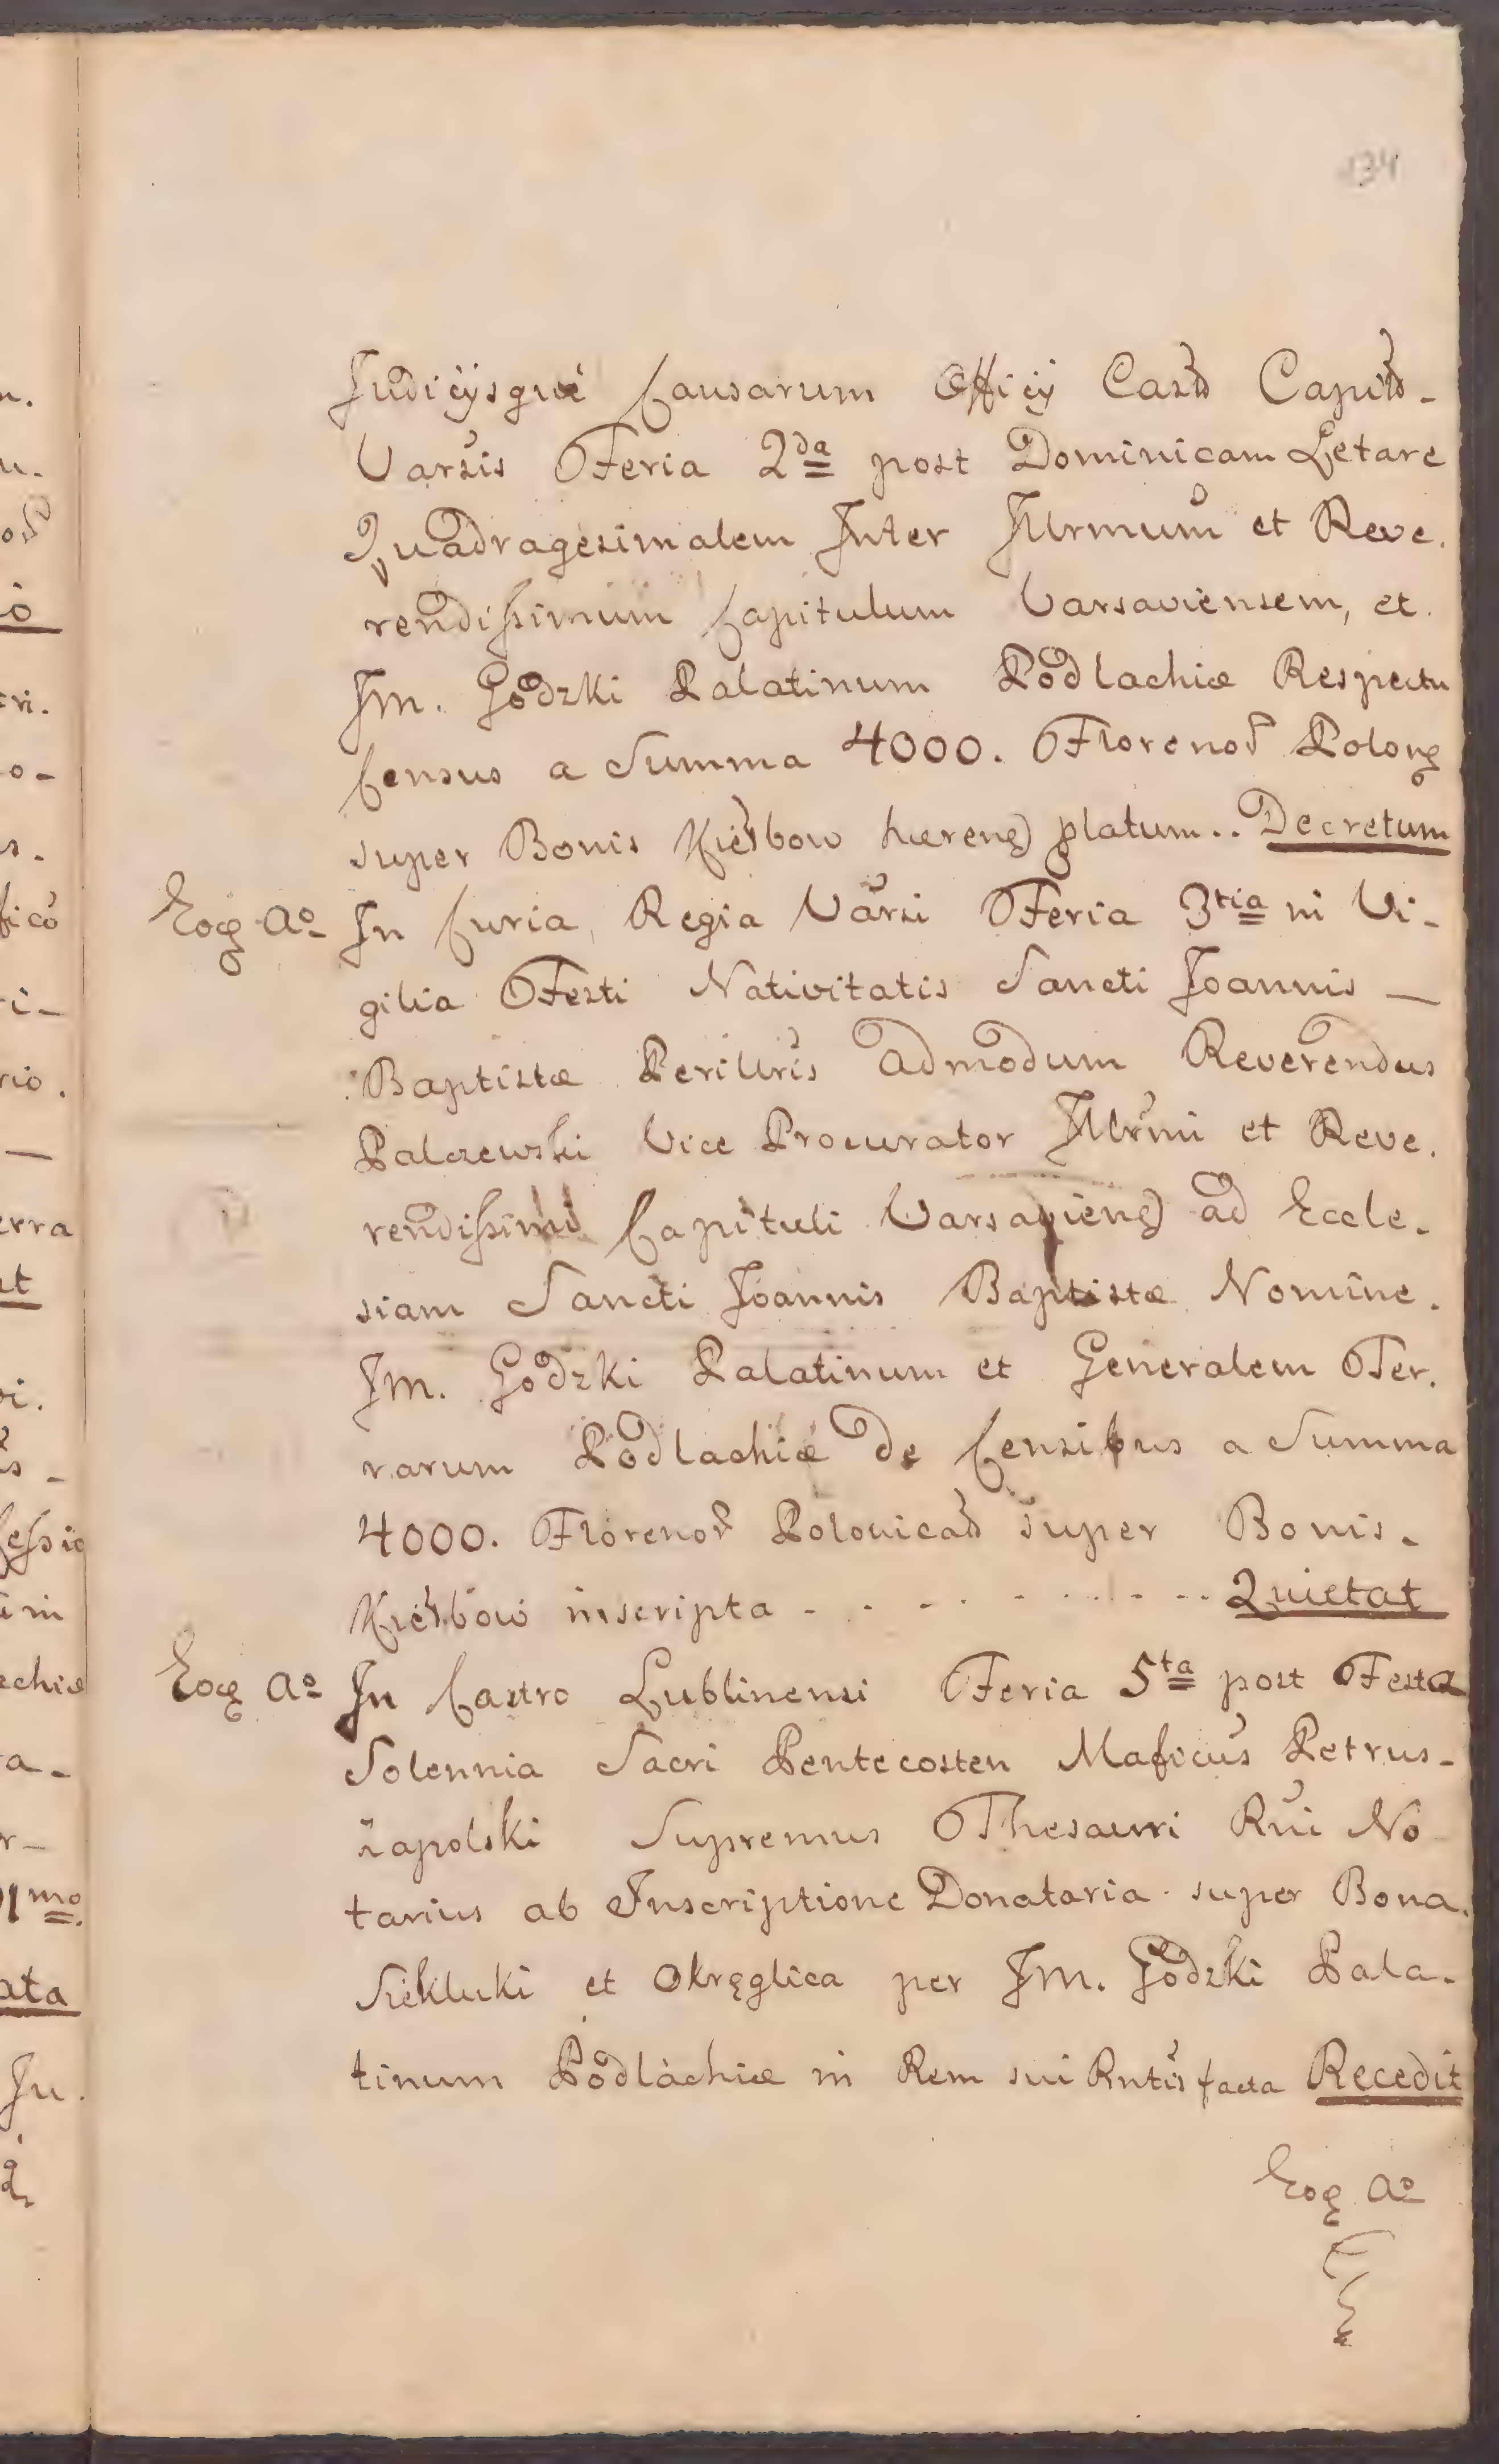 134
Judicÿsque Causarum Officÿ Cast. Capit. -
Varsis Feria 2da post Dominicam Letare
Quadragesimalem Inter Illrmum et Reve.
rendissimum Capitulum Varsaviensem, et
Jm. Godzki Palatinum Podlachiæ Respectu
Census a Summa 4000. Florenor Polonq
super Bonis Kiełbow hæreng platum.. Decretum
Eoq Ao In Curia Regia Varsi Feria 3tia in Vi-
gilia Festi Nativitatis Sancti Joannis —
Baptistæ Perillris Admodum Reverendus
Palczewski Vice Procurator Illrmi et Reve.
rendissimi Capituli Varsavieng ad Eccle.
siam Sancti Joannis Baptistæ Nomine.
Jm. Godzki Palatinum et Generalem Ter.
rarum Podlachiæ de Censibus a Summa
4000. Florenor Polonical super Bonis.
Kiełbow inscripta - . . - . - . . - . . Quietat
Eoq Ao In Castro Lublinensi Feria 5ta post Festa
Solennia Sacri Pentecosten Maficus Petrus-
Zapolski Supremus Thesauri Rni No
tarius ab Inscriptione Donatoria super Bona.
Siekluki et Okręglica per Jm. Godzki Pala.
tinum Podlachiæ in Rem sui Rntis facta Recedit
Eoq Ao